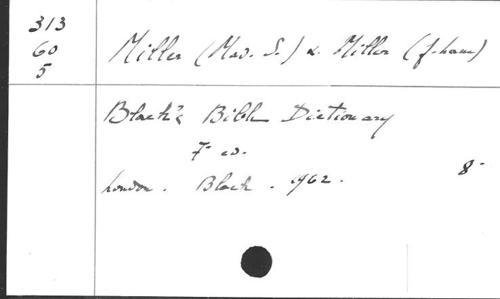 313
60
5
Miller (Mad. S.) & Miller (J. Lane)
Black's Bible Dictionary
7- ed.
London. Black. 1962.
8-